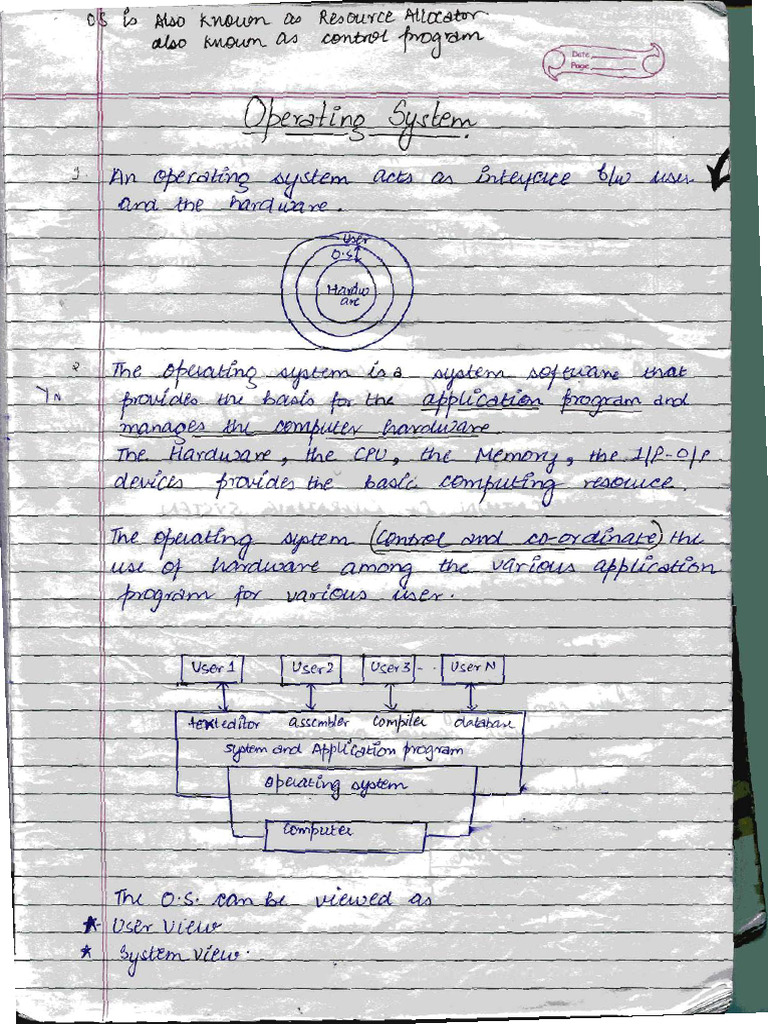 OS is Also known as Resource Allocator
also known as control program
Date
Page
Operating System.
1. An operating system acts as interface b/w user
and the hardware.
User
O.S
Hardw
are
2. The operating system is a system software that
provides the basis for the application program and
manages the computer hardware
The Hardware, the CPU, the Memory, the I/P-O/P
devices provides the basic computing resource.
The operating system (control and co-ordinate) the
use of hardware among the various application
program for various user.
User 1 User 2 User 3 - .. User N
texteditor assembler compiler database
system and Application program
operating system
Computer
The O.S. can be viewed as
* User View
* System view.